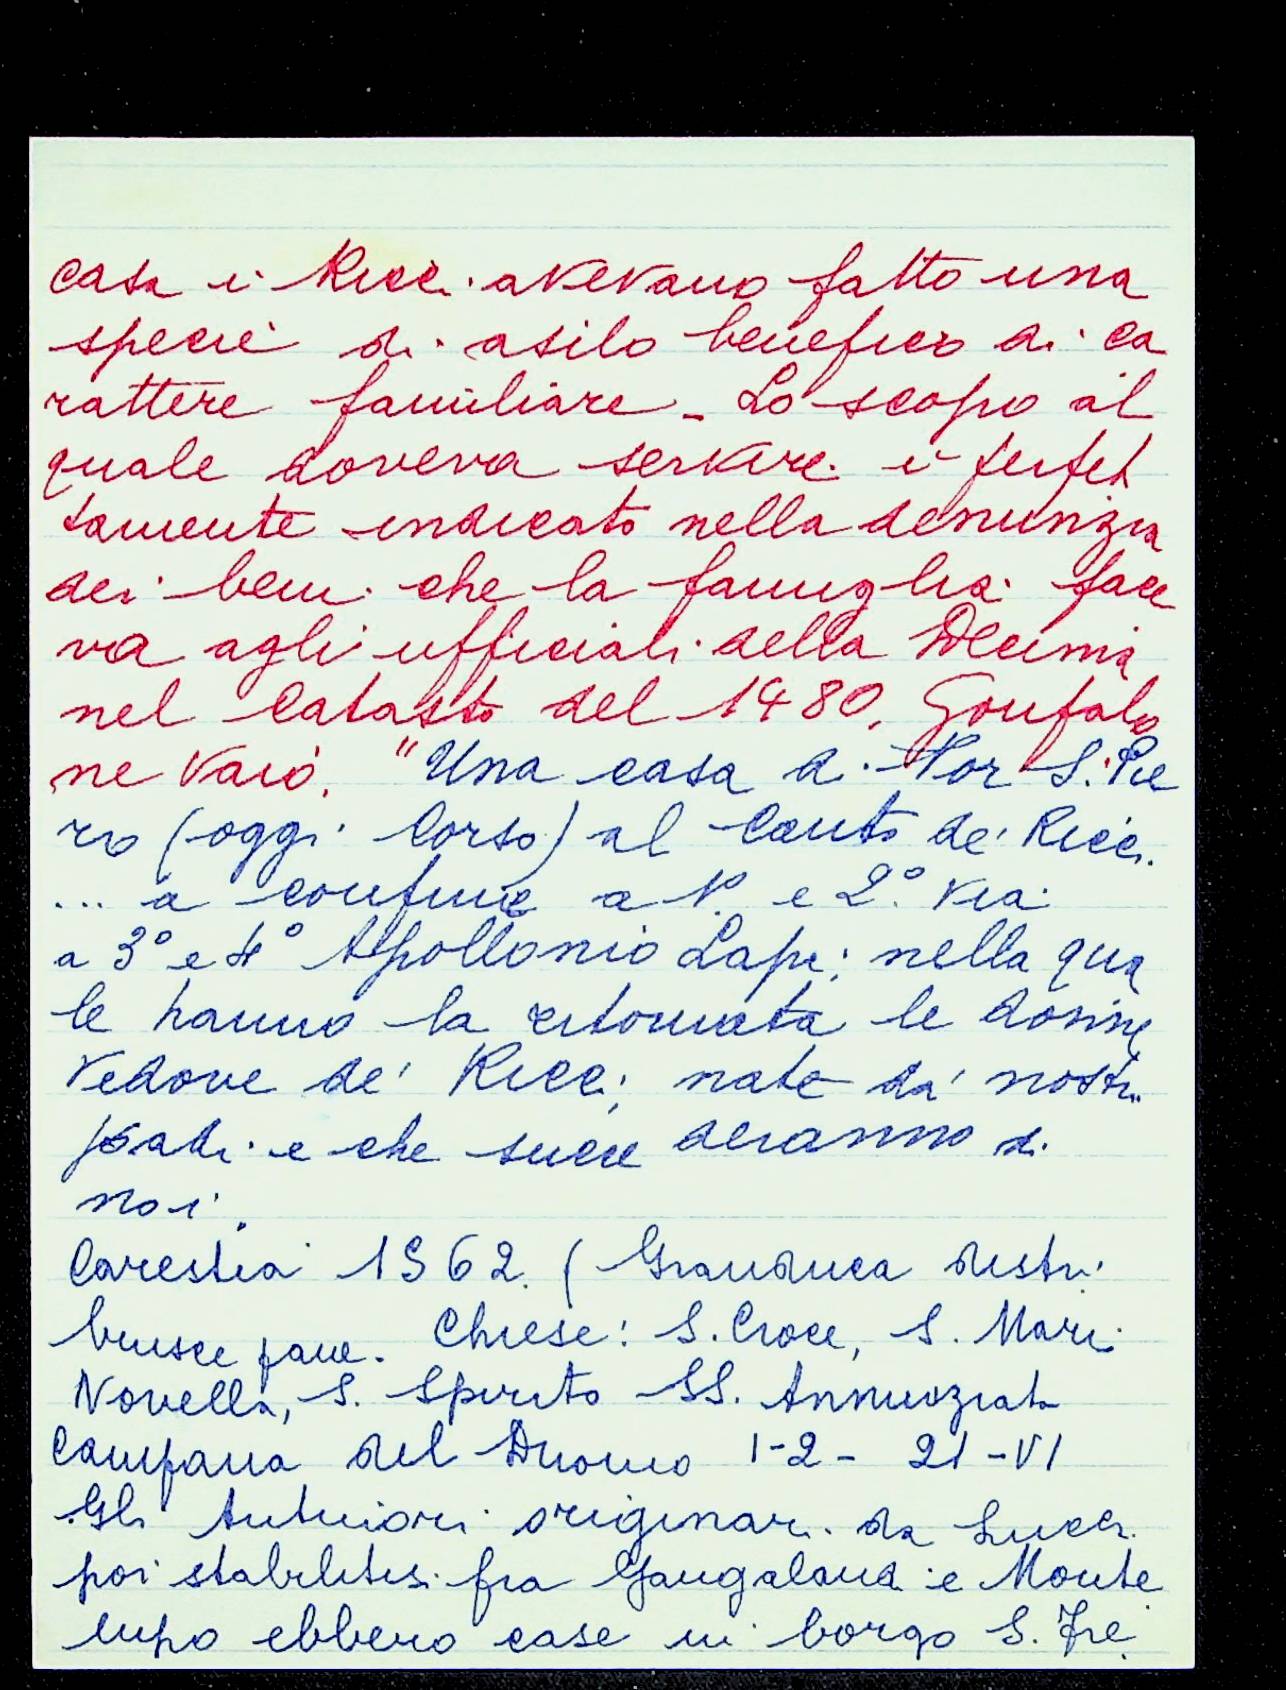 casa i Ricci avevano fatto una
specie di asilo benefico di ca
rattere familiare - Lo scopo al
quale doveva servire è perfet
tamente indicato nella denunzia
dei beni che la famiglia face
va agli ufficiali della Decima
nel Catasto del 1480. Gonfalo
ne Vaio. "Una casa di Hor S. Pie
ro (oggi Corso) al Canto de' Ricci.
... a confine a 1° e 2° via
a 3° e 4° Apollonio Lapi; nella qua
le hanno la ritornata le donne
vedove de' Ricci, nate da' nostri
padri e che succederanno di
noi.
Carestia 1562. (Granduca distri
buisce pane. Chiese: S. Croce, S. Mari
Novella, S. Spirito SS. Annunziata
Campana del Duomo 1-2- 21-VI
Gli originari da Lucca
poi stabilitisi fra Gangalandi e Monte
lupo ebbero case in borgo S. Fre